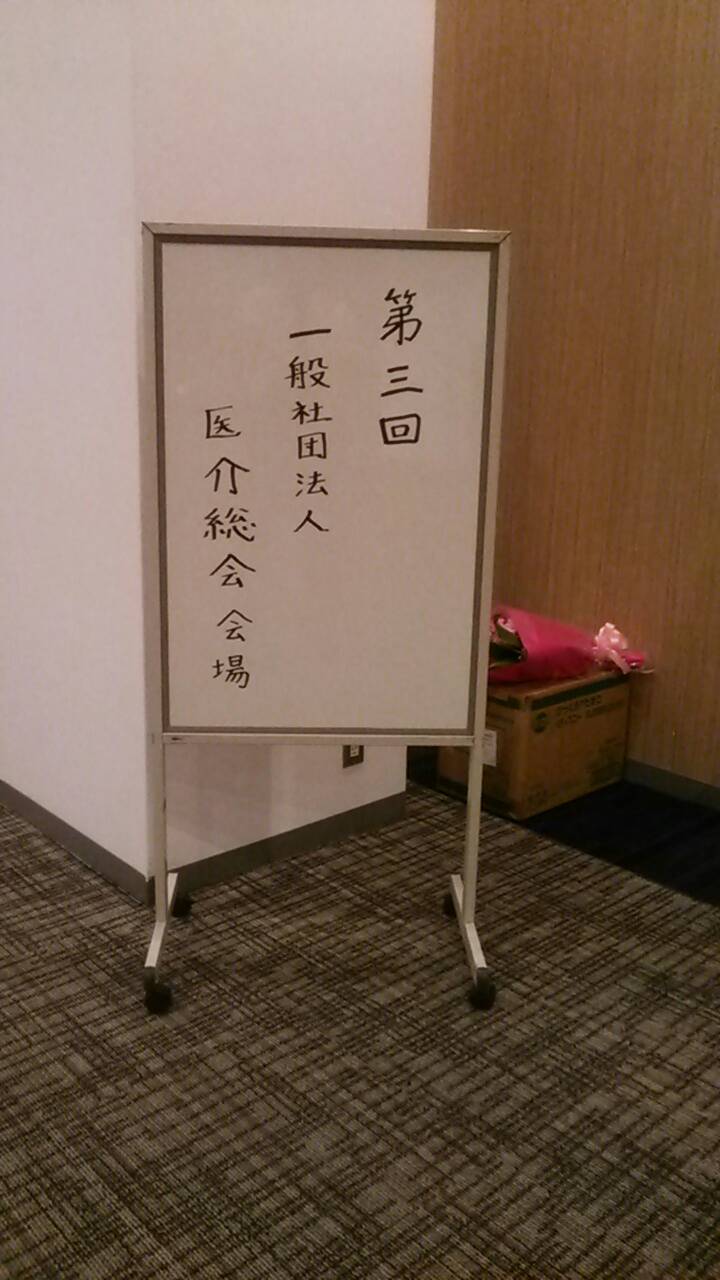 第三回
一般社団法人
医介総会会場